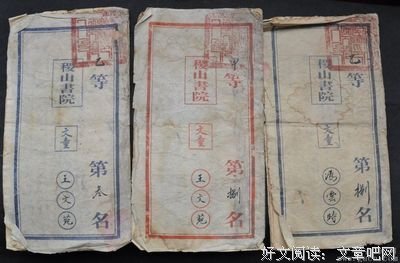 乙等 第叁名
稷山書院
文童
王文苑
甲等 第捌名
稷山書院
文童
王文苑
乙等 第捌名
稷山書院
文童
好文阅读：文章吧网